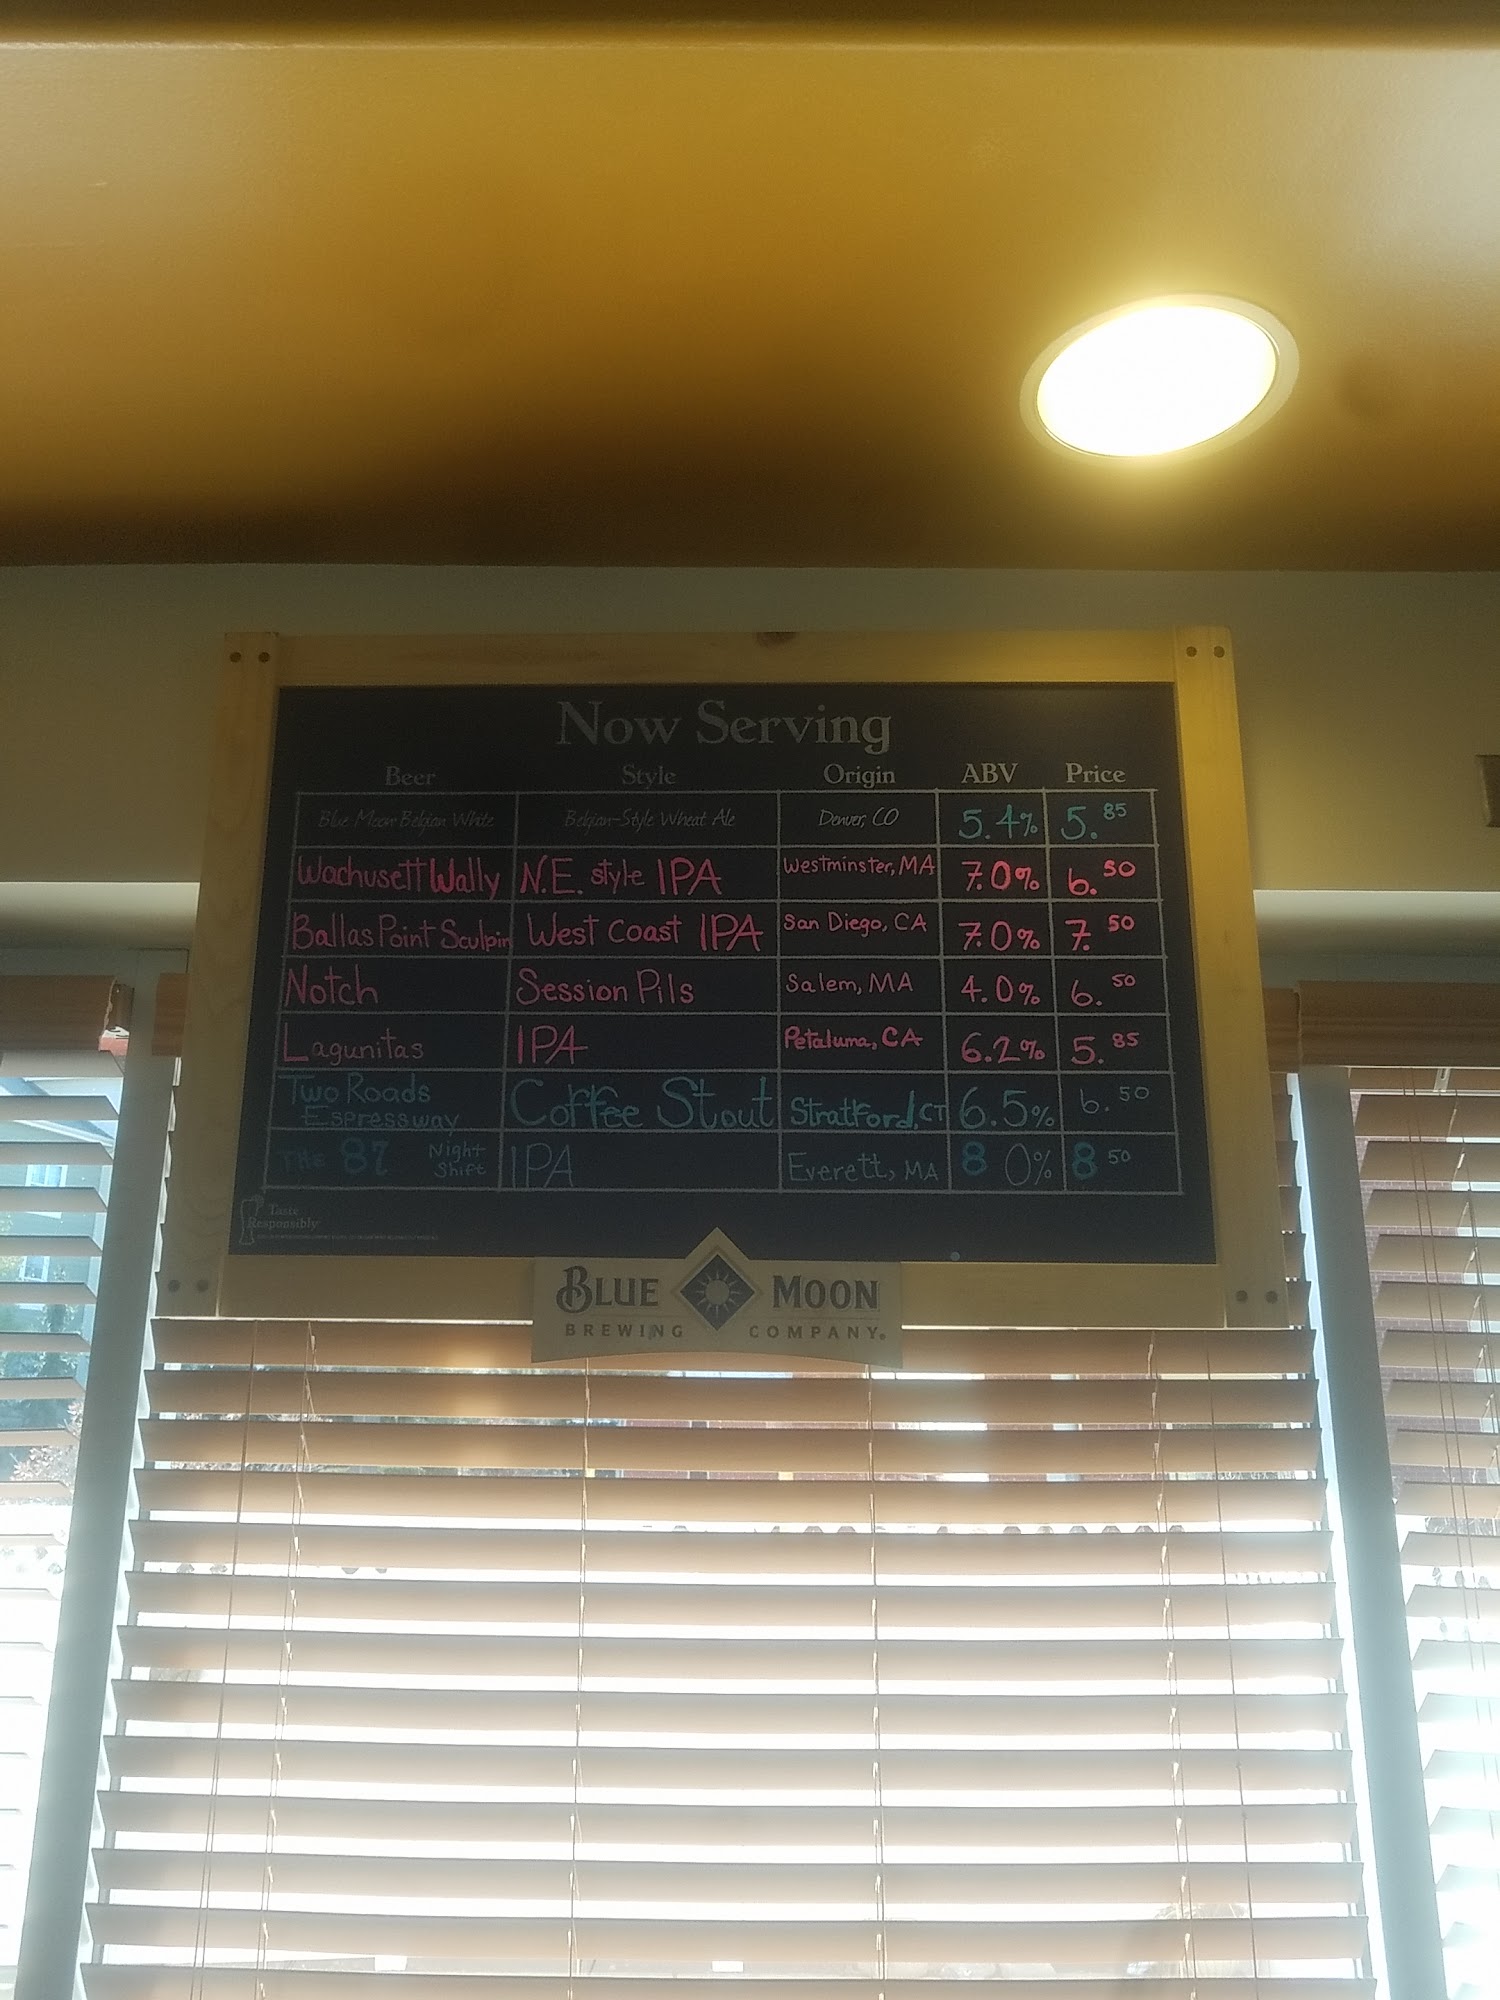 Now Serving
Beer Style Origin ABV Price
Blue Moon Belgian White Belgian-Style Wheat Ale Denver, CO 5.4% 5.85
Wachusett Wally N.E. style IPA Westminster, MA 7.0% 6.50
Ballas Point Sculpin West Coast IPA San Diego, CA 7.0% 7.50
Notch Session Pils Salem, MA 4.0% 6.50
Lagunitas IPA Petaluma, CA 6.2% 5.85
Two Roads Espressway Coffee Stout Stratford, CT 6.5% 6.50
THE 87 Night Shift IPA Everett, MA 8 0% 8 50
Taste
Responsibly
BLUE MOON
BREWING COMPANY®